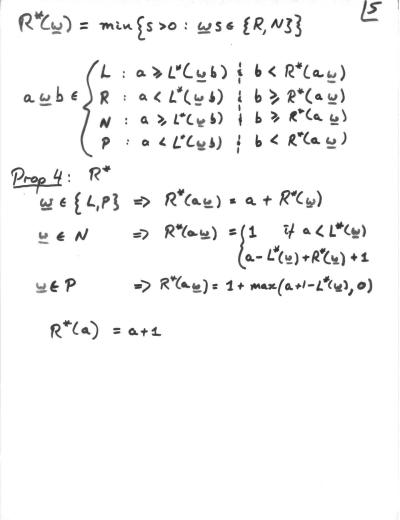 15
R*(w) = min{s>0 : ws ∈ {R,N}}
a w b ∈ { L : a ≥ L*(wb) ¦ b < R*(aw)
R : a < L*(wb) ¦ b ≥ R*(aw)
N : a ≥ L*(wb) ¦ b ≥ R*(aw)
P : a < L*(wb) ¦ b < R*(aw)
Prop 4: R*
w ∈ {L,P} => R*(aw) = a + R*(w)
w ∈ N => R*(aw) = { 1 if a < L*(w)
a - L*(w) + R*(w) + 1
w ∈ P => R*(aw) = 1 + max(a+1-L*(w), 0)
R*(a) = a+1